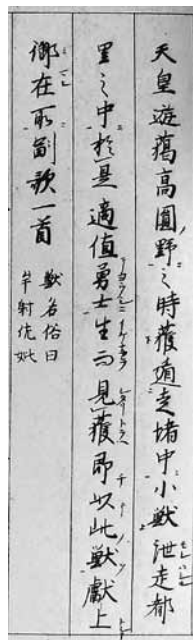 天皇遊獦高圓野之時獲遁走堵中小獸泄走都
里之中於是適值勇士生而見獲即以此獸獻上
御在所副歌一首
獸名俗曰
牟射佐妣